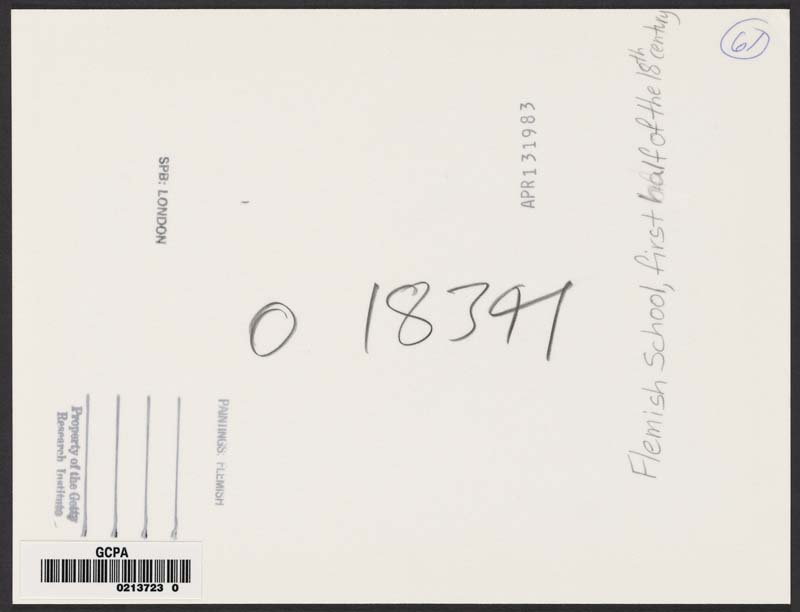 61
Flemish School, first half of the 18th century
APR131983
SPB: LONDON
O 18391
PAINTINGS: FLEMISH
Property of the Getty
Research Institute
GCPA
0213723 0